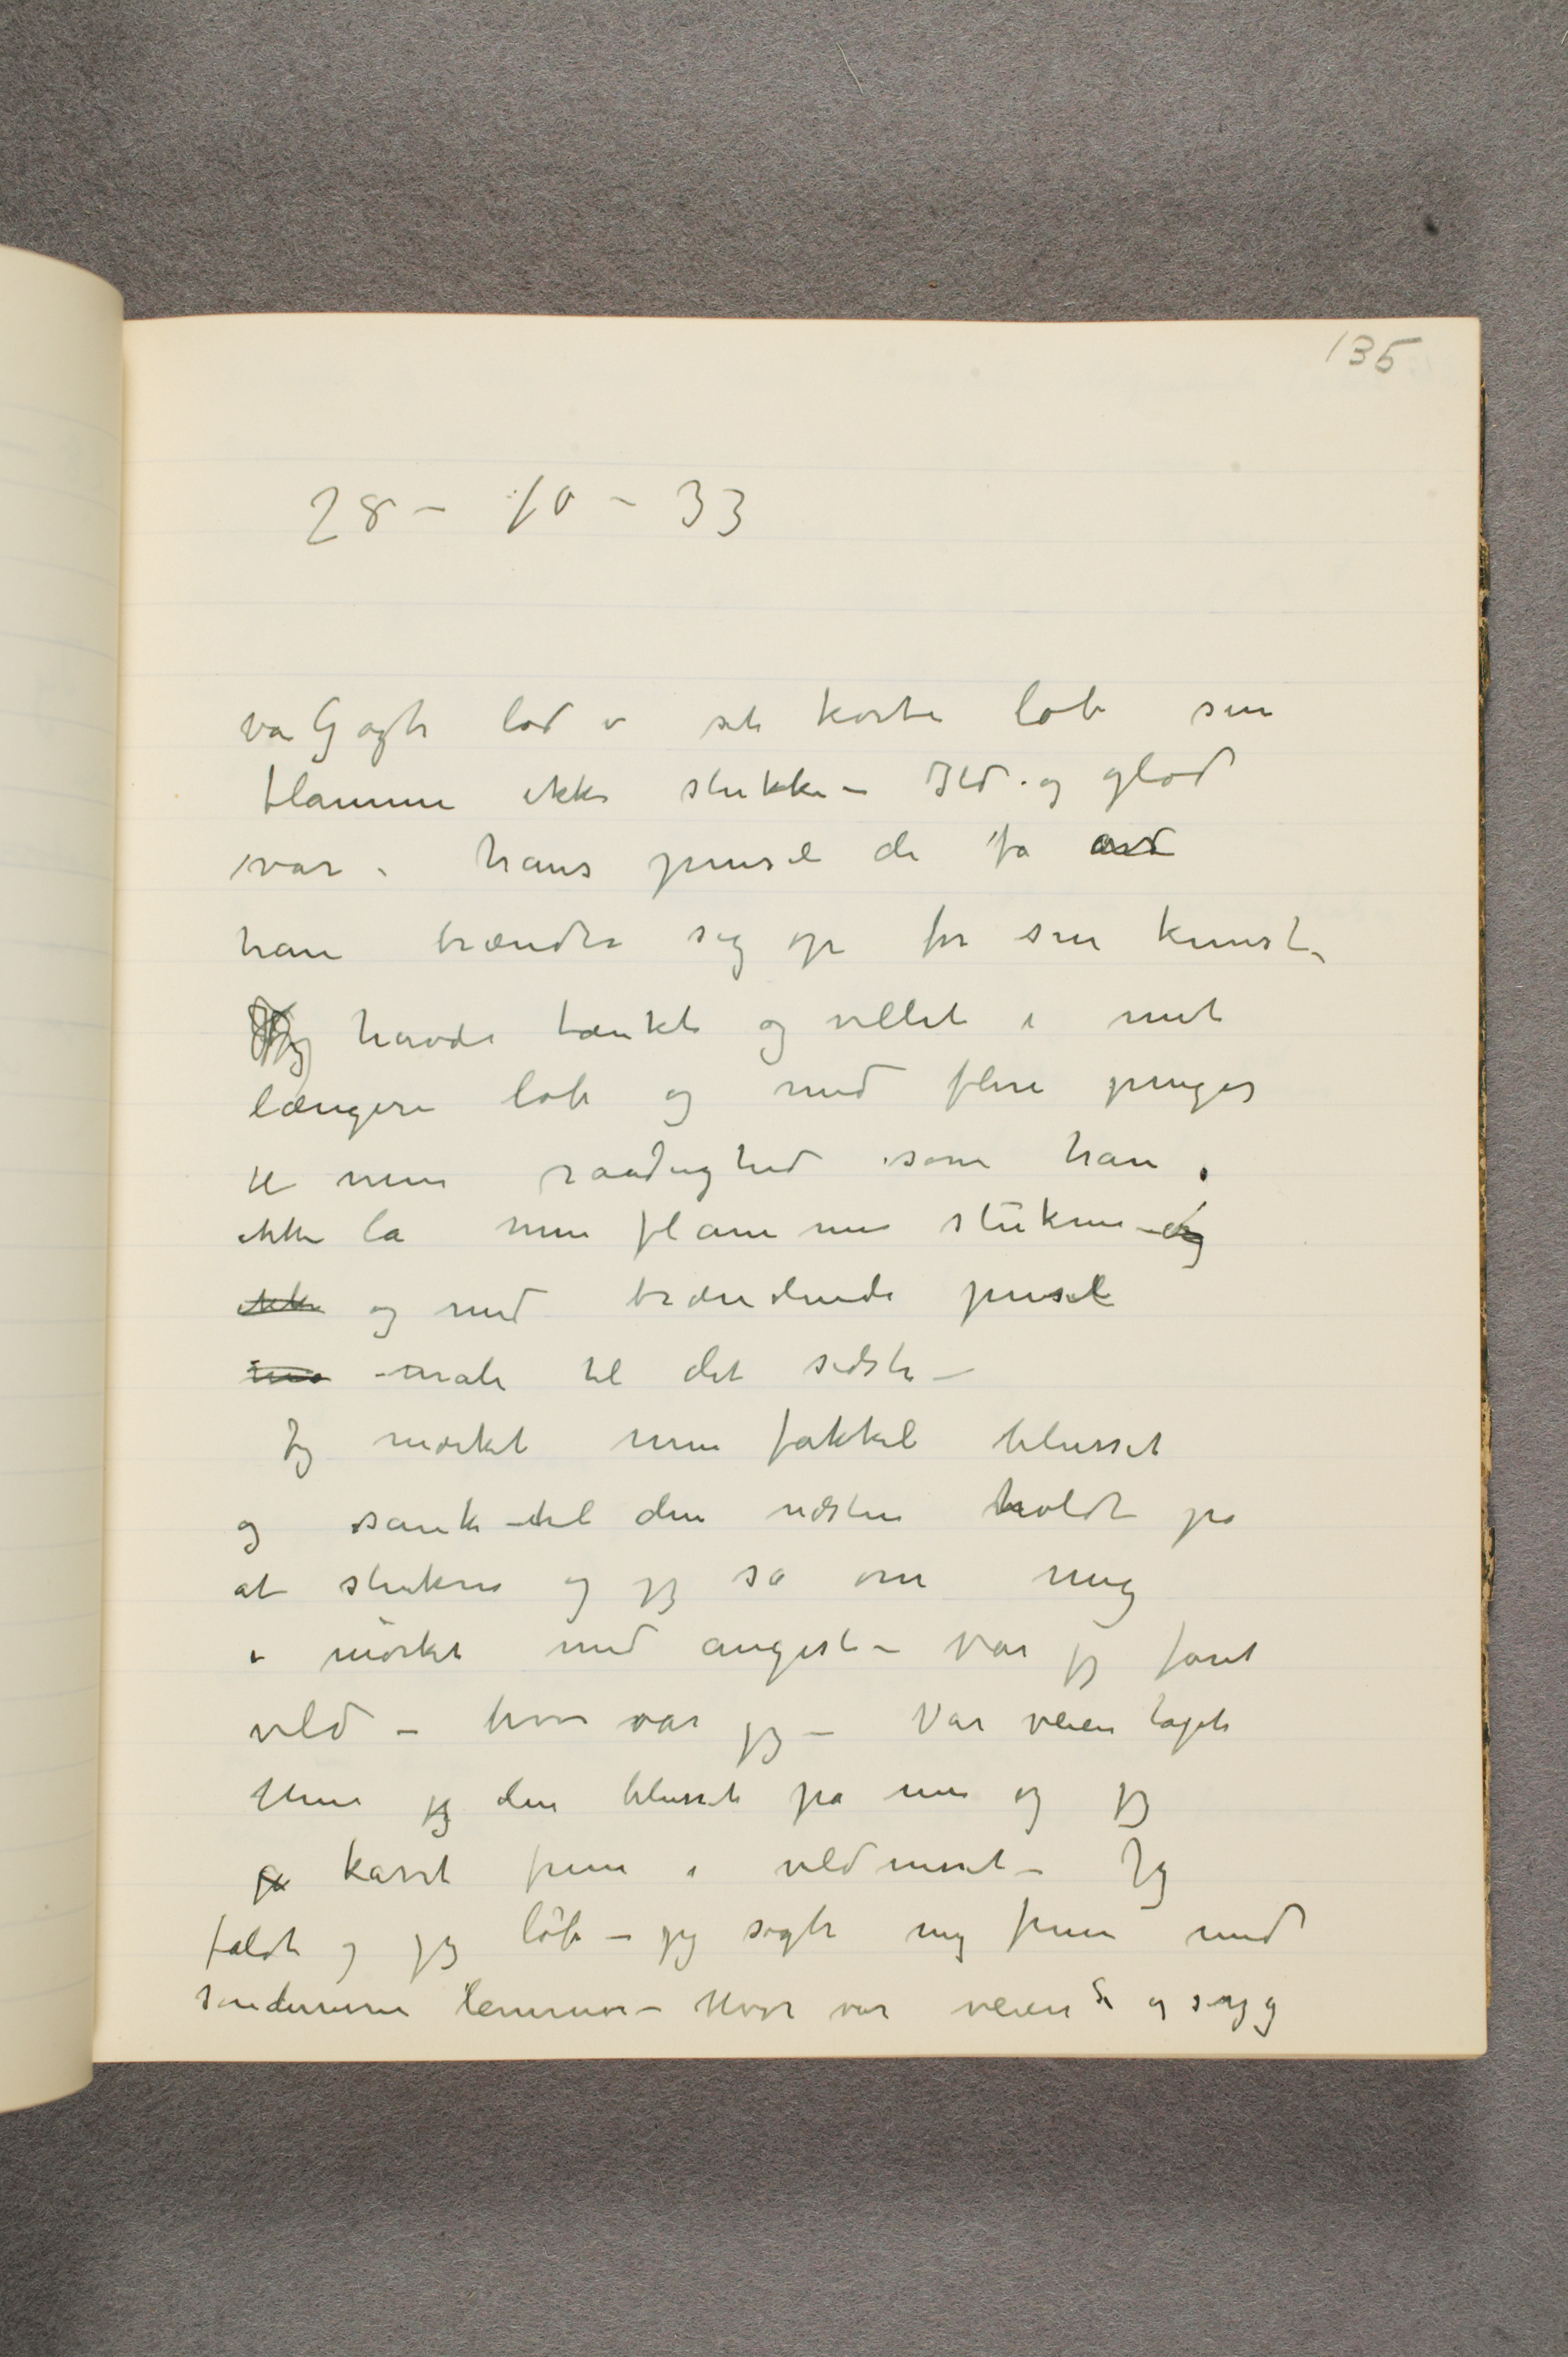 135
28 – 10 – 33
van Gogh lod i sit korte løb sin
flamme ikke slukke – Ild og glød
var i hans pensel de få aar
han brændte sig op for sin kunst –
Jeg havde tænkt og villet i mit
længere løb og med flere penger
til min raadighed som han
ikke la min flamme slukne og
ikke og med brændende pensel
male til det sidste –
Jeg mærket min fakkel blusset
og sank til den næsten holdt på
at slukne og jeg så om mig
i mørket med angest – Var jeg faret
vild – hvor var jeg – Var veien tapt
Men jeg den blusset på nu og jeg
på kavet frem i vildnisset – Jeg
faldt og jeg løb – jeg søgte mig frem med
lemmer – Hvor var veien Se og syg